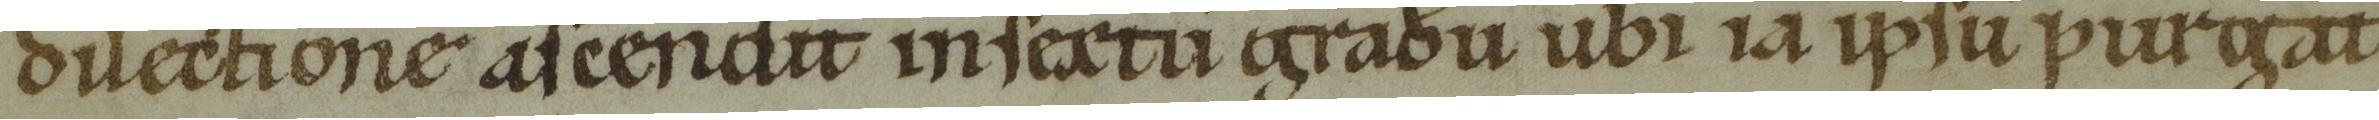 dilectione ascendit insextu gradu ubi ia ipsu purgat